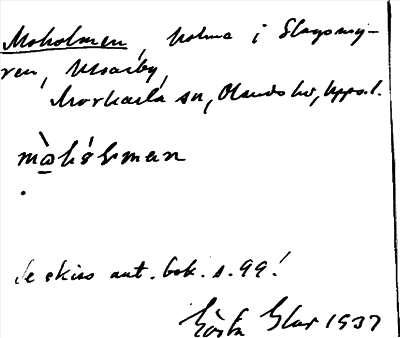 Moholmen, holme i Slagsmy-
ren, Västerby,
Morkarla sn, Olands hd, Uppsl.
mòhólman
Se skiss ant. bok. s. 99!
Gösta 1937